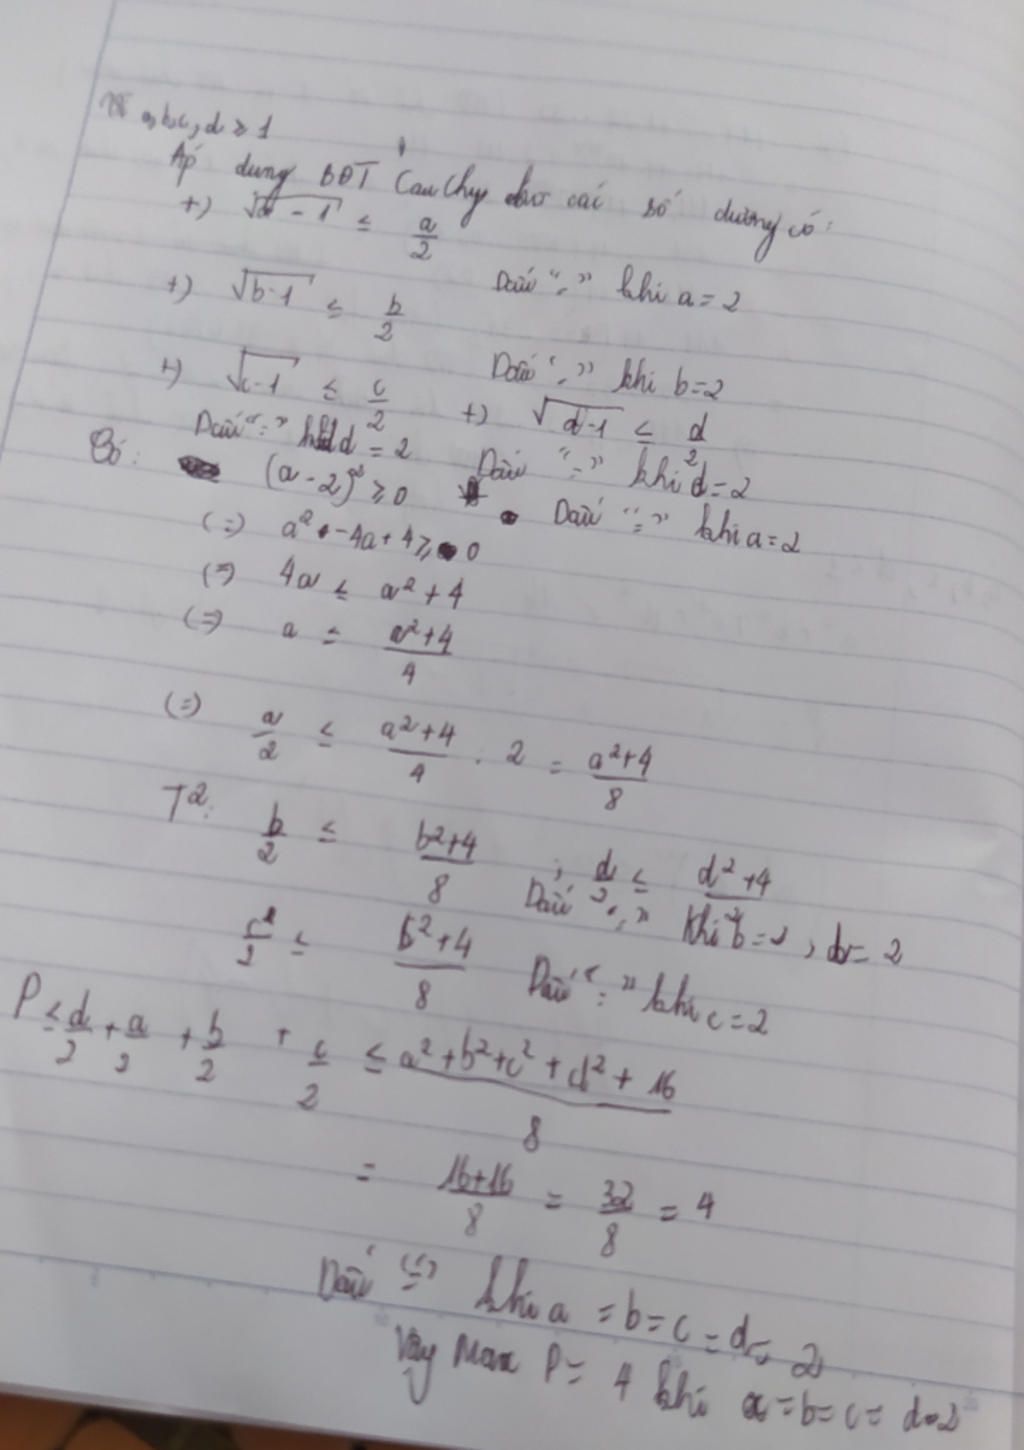 Vì a,b,c,d ≥ 1
Áp dụng BĐT Cauchy cho các số dương có:
+) √a-1 ≤ a/2
Dấu "=" khi a = 2
+) √b-1 ≤ b/2
Dấu "=" khi b = 2
+) √c-1 ≤ c/2 +) √d-1 ≤ d/2
Dấu "=" khi d = 2 Dấu "=" khi d = 2
Có: (a - 2)² ≥ 0 Dấu "=" khi a = 2
(=) a² - 4a + 4 ≥ 0
(=) 4a ≤ a² + 4
(=) a ≤ (a²+4)/4
(=) a/2 ≤ (a²+4)/4 . 2 = (a²+4)/8
T²: b/2 ≤ (b²+4)/8 ; d/2 ≤ (d²+4)/8
Dấu "=" khi b = 2, d = 2
c/2 ≤ (b²+4)/8 Dấu "=" khi c = 2
P ≤ d/2 + a/2 + b/2 + c/2 ≤ (a² + b² + c² + d² + 16)/8
= (16+16)/8 = 32/8 = 4
Dấu "=" khi a = b = c = d = 2
Vậy Max P = 4 khi a = b = c = d = 2